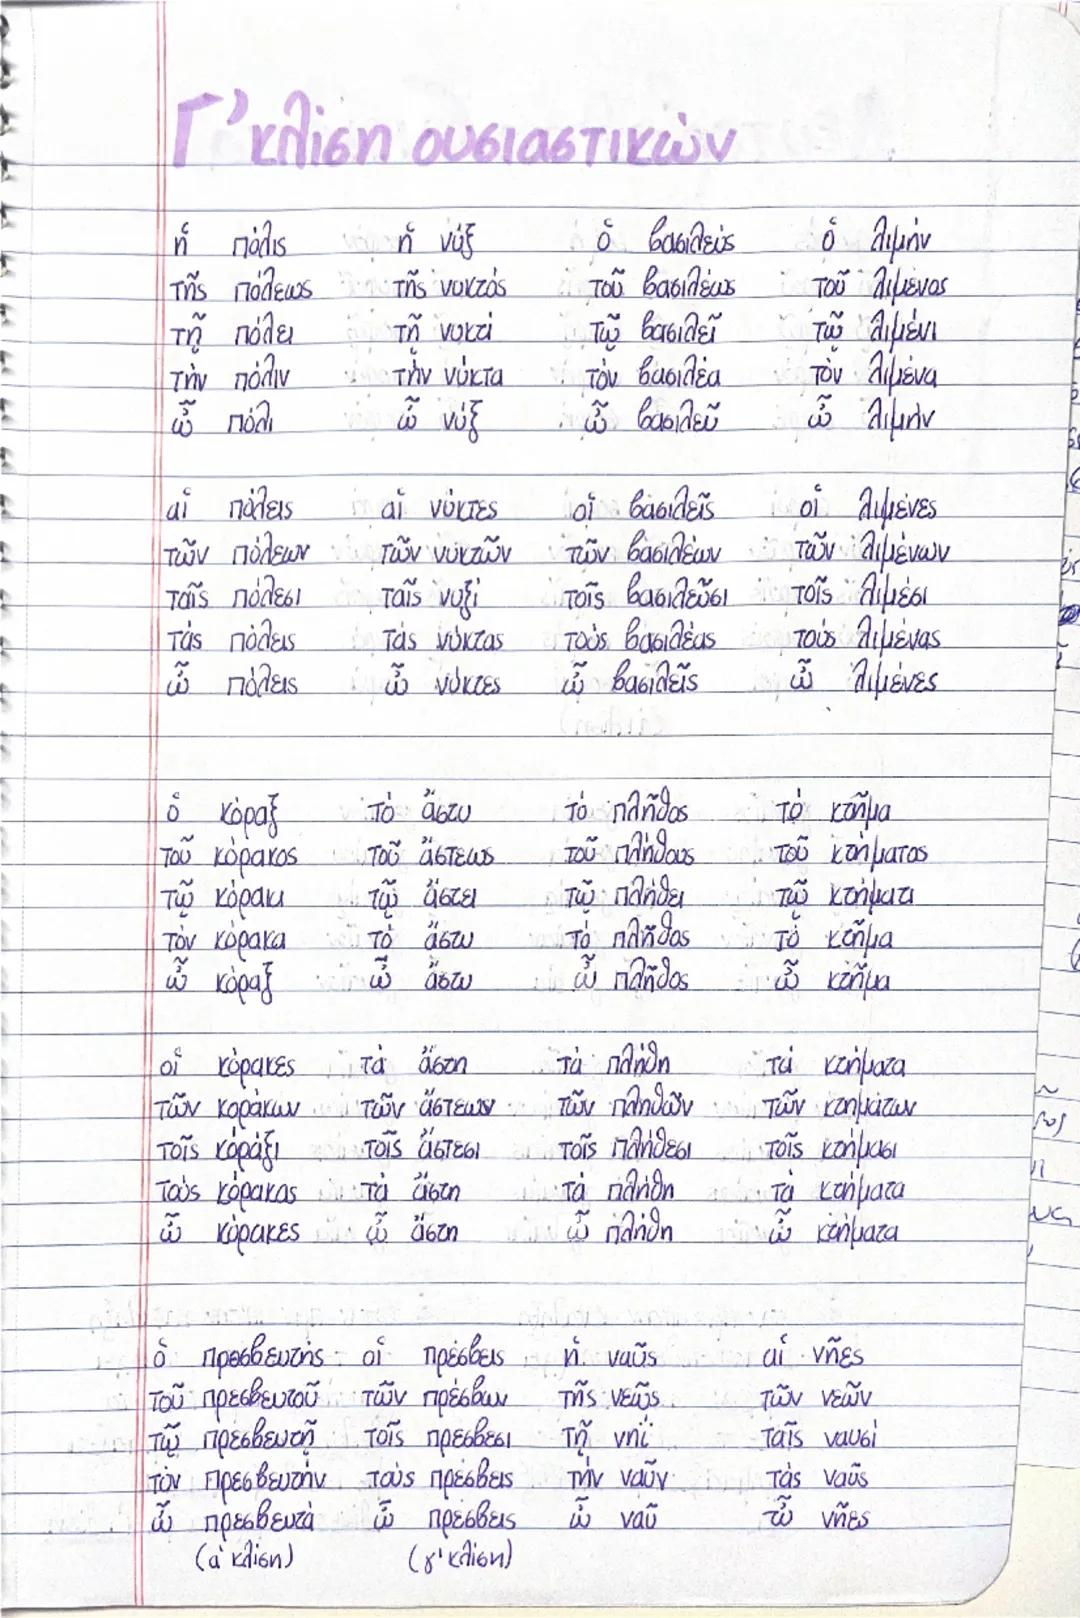 Γ' κλίση ουσιαστικών
ἡ πόλις ἡ νύξ ὁ βασιλεύς ὁ λιμήν
τῆς πόλεως τῆς νυκτός τοῦ βασιλέως τοῦ λιμένος
τῇ πόλει τῇ νυκτί τῷ βασιλεῖ τῷ λιμένι
τὴν πόλιν τὴν νύκτα τὸν βασιλέα τὸν λιμένα
ὦ πόλι ὦ νύξ ὦ βασιλεῦ ὦ λιμήν
αἱ πόλεις αἱ νύκτες οἱ βασιλεῖς οἱ λιμένες
τῶν πόλεων τῶν νυκτῶν τῶν βασιλέων τῶν λιμένων
ταῖς πόλεσι ταῖς νυξί τοῖς βασιλεῦσι τοῖς λιμέσι
τὰς πόλεις τὰς νύκτας τοὺς βασιλέας τοὺς λιμένας
ὦ πόλεις ὦ νύκτες ὦ βασιλεῖς ὦ λιμένες
ὁ κόραξ τὸ ἄστυ τὸ πλῆθος τὸ κτῆμα
τοῦ κόρακος τοῦ ἄστεως τοῦ πλήθους τοῦ κτήματος
τῷ κόρακι τῷ ἄστει τῷ πλήθει τῷ κτήματι
τὸν κόρακα τὸ ἄστυ τὸ πλῆθος τὸ κτῆμα
ὦ κόραξ ὦ ἄστυ ὦ πλῆθος ὦ κτῆμα
οἱ κόρακες τὰ ἄστη τὰ πλήθη τὰ κτήματα
τῶν κοράκων τῶν ἄστεων τῶν πληθῶν τῶν κτημάτων
τοῖς κόραξι τοῖς ἄστεσι τοῖς πλήθεσι τοῖς κτήμασι
τοὺς κόρακας τὰ ἄστη τὰ πλήθη τὰ κτήματα
ὦ κόρακες ὦ ἄστη ὦ πλήθη ὦ κτήματα
ὁ πρεσβευτής οἱ πρέσβεις ἡ ναῦς αἱ νῆες
τοῦ πρεσβευτοῦ τῶν πρέσβεων τῆς νεώς τῶν νεῶν
τῷ πρεσβευτῇ τοῖς πρέσβεσι τῇ νηί ταῖς ναυσί
τὸν πρεσβευτήν τοὺς πρέσβεις τὴν ναῦν τὰς ναῦς
ὦ πρεσβευτά ὦ πρέσβεις ὦ ναῦ ὦ νῆες
(α' κλίση) (γ' κλίση)